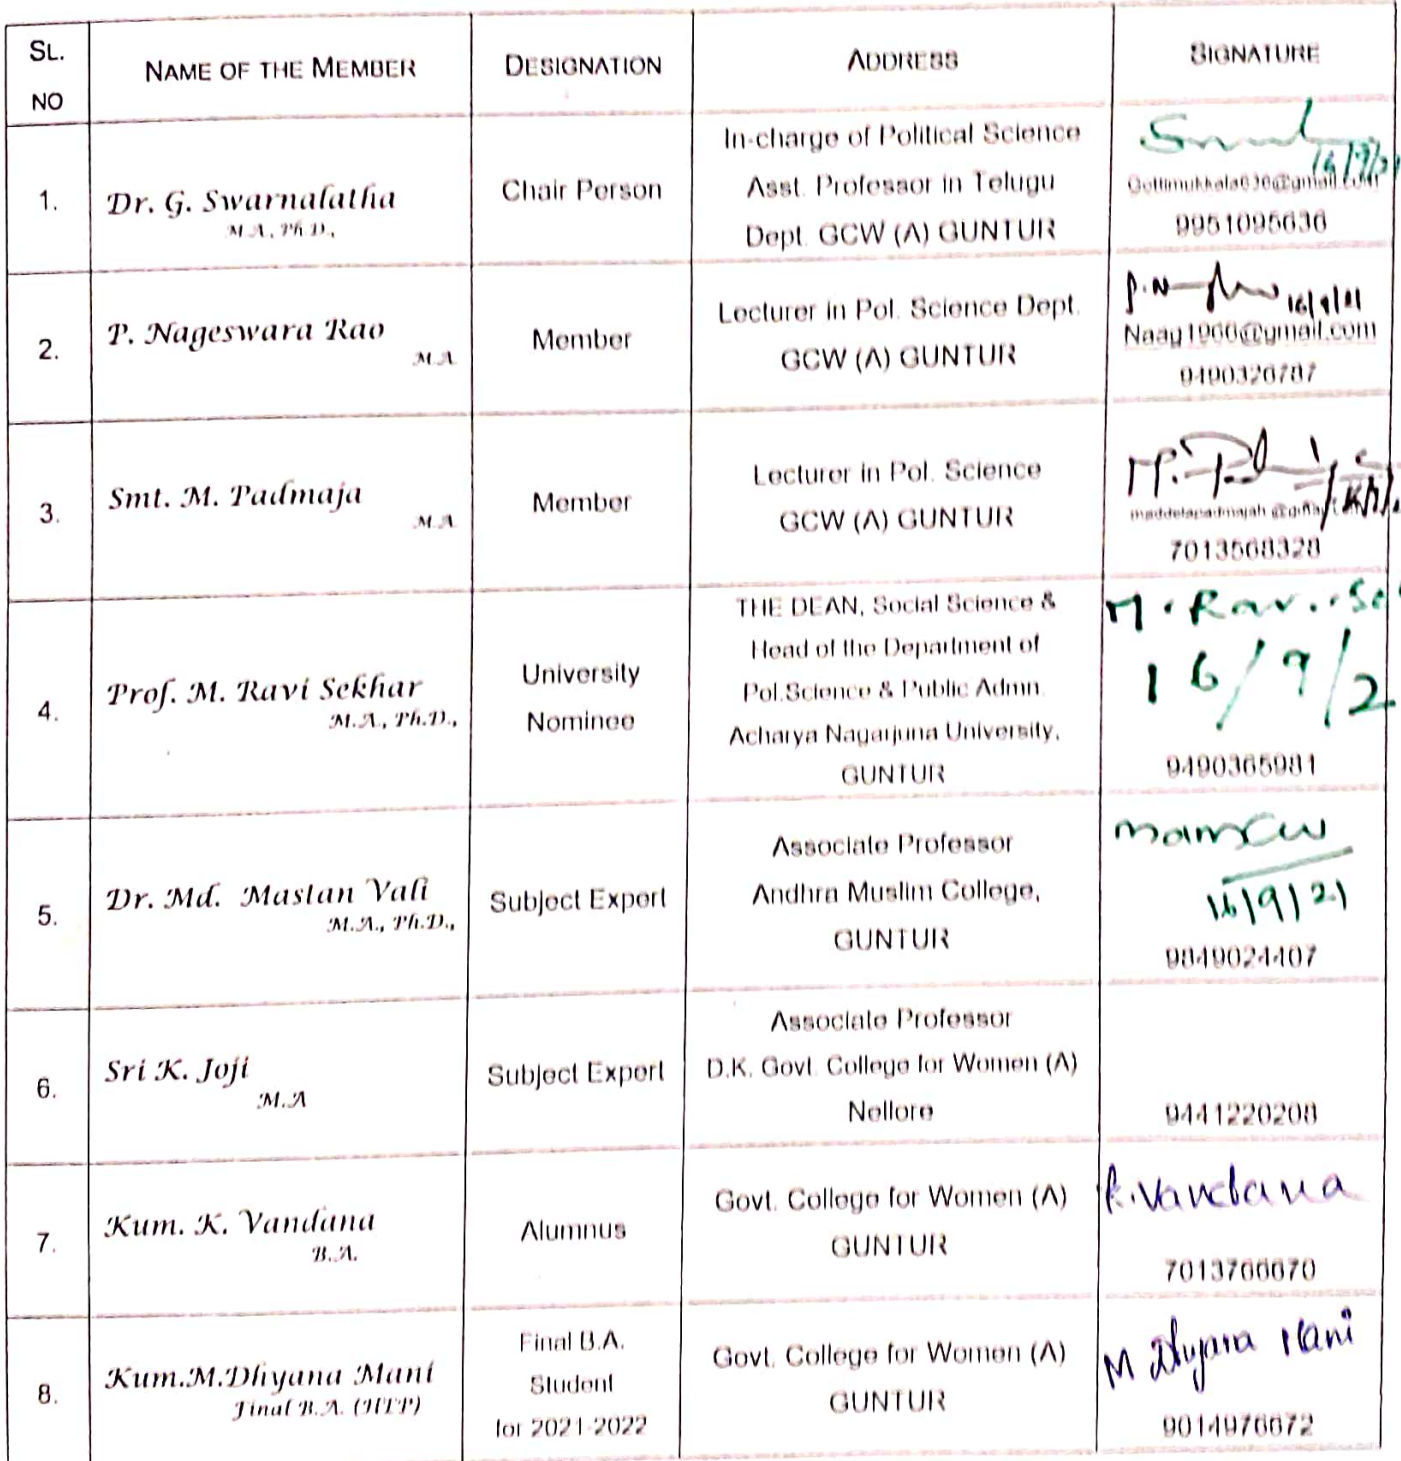 SL. NO NAME OF THE MEMBER DESIGNATION ADDRESS SIGNATURE
1. Dr. G. Swarnalatha M.A., Ph.D., Chair Person In-charge of Political Science
Asst. Professor in Telugu
Dept. GCW (A) GUNTUR
16/9/21
Gottimukkala636@gmail.com
9951095636
2. P. Nageswara Rao M.A Member Lecturer in Pol. Science Dept.
GCW (A) GUNTUR
16/9/21
Naag1966@gmail.com
9490326787
3. Smt. M. Padmaja M.A Member Lecturer in Pol. Science
GCW (A) GUNTUR
7013568328
4. Prof. M. Ravi Sekhar M.A., Ph.D., University Nominee THE DEAN, Social Science &
Head of the Department of
Pol.Science & Public Admn.
Acharya Nagarjuna University,
GUNTUR
M. Ravi Se
16/9/2
9490365981
5. Dr. Md. Mastan Vali M.A., Ph.D., Subject Expert Associate Professor
Andhra Muslim College,
GUNTUR
16/9/21
9849024407
6. Sri K. Joji M.A Subject Expert Associate Professor
D.K. Govt. College for Women (A)
Nellore
9441220208
7. Kum. K. Vandana B.A. Alumnus Govt. College for Women (A)
GUNTUR
K. Vandana
7013766670
8. Kum.M.Dhyana Mani Final B.A. (HTP) Final B.A.
Student
for 2021-2022
Govt. College for Women (A)
GUNTUR
M Dhyana Mani
9014976672